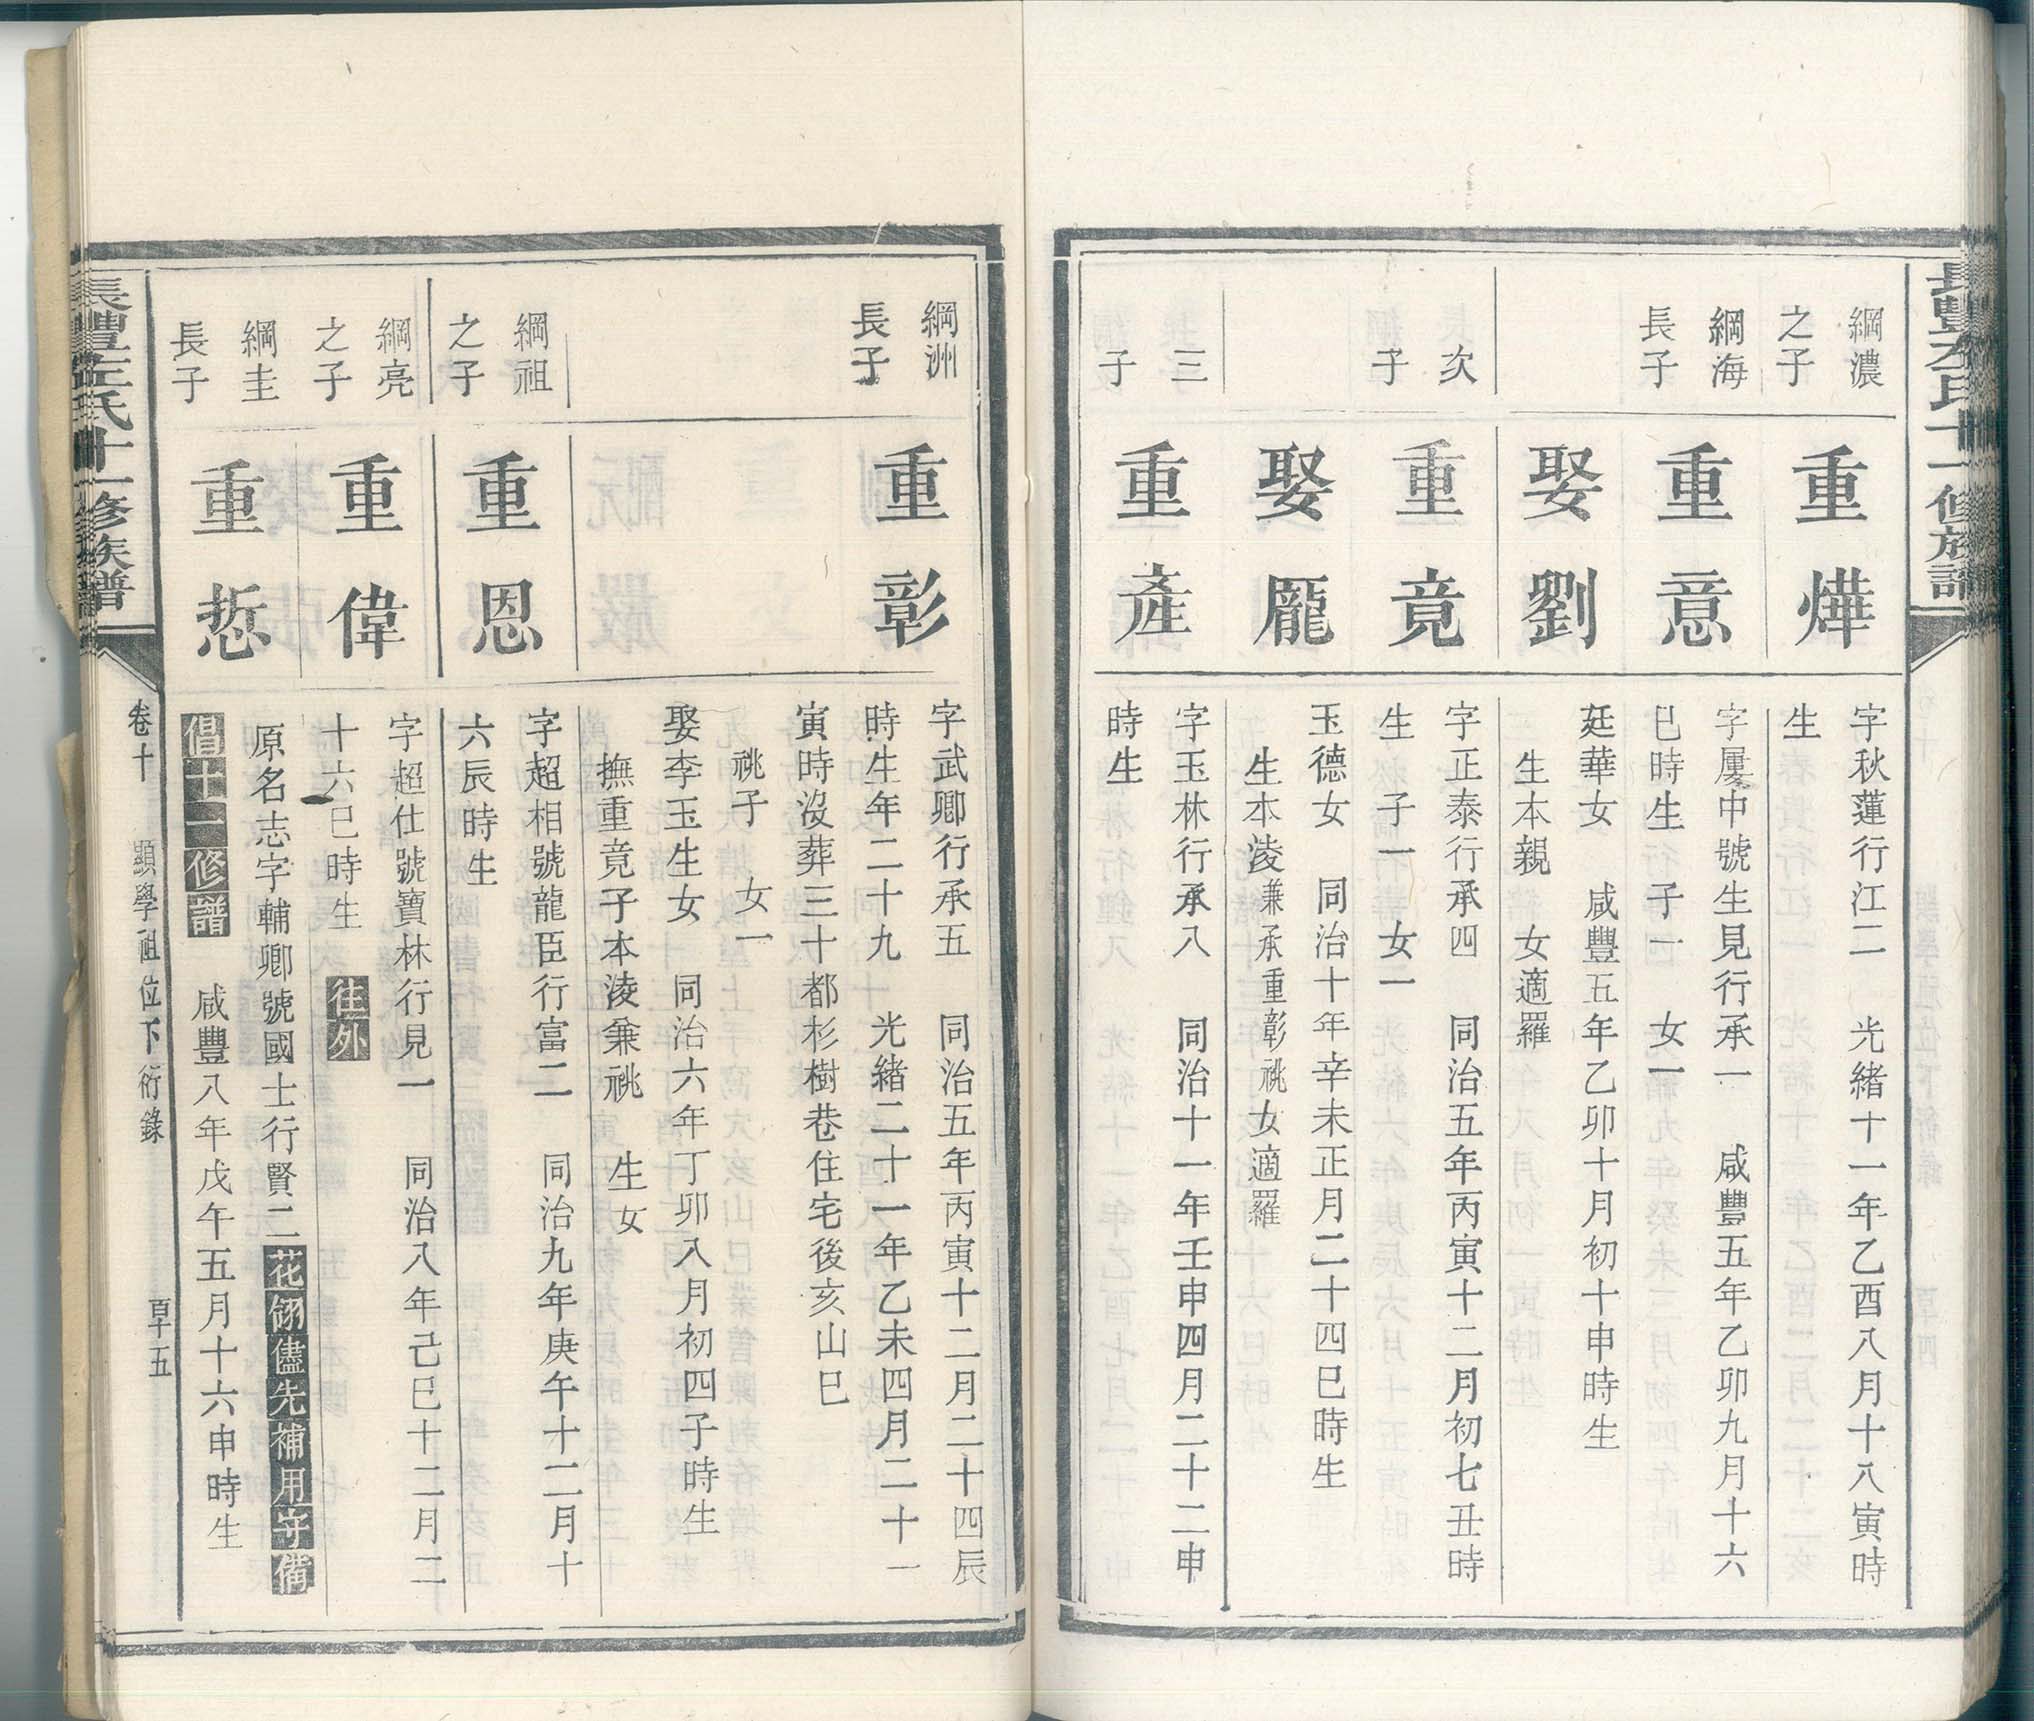 長豐左氏十一修族譜
綱濃
之子
重燁
字秋蓮行江二　光緒十一年乙酉八月十八寅時
生
綱海
長子
重意
字屢中號生見行承一　咸豐五年乙卯九月十六
巳時生　子一　女一
娶劉
廷華女　咸豐五年乙卯十月初十申時生
生本親　女適羅
次
子
重竟
字正泰行承四　同治五年丙寅十二月初七丑時
生　子一　女一
娶龐
玉德女　同治十年辛未正月二十四巳時生
生本淩兼承重彰祧女適羅
三
子
重產
字玉林行承八　同治十一年壬申四月二十二申
時生
綱洲
長子
重彰
字武卿行承五　同治五年丙寅十二月二十四辰
時生年二十九　光緒二十一年乙未四月二十一
寅時沒葬三十都杉樹巷住宅後亥山巳
祧子　女一
娶李玉生女　同治六年丁卯八月初四子時生
撫重竟子本淩兼祧　生女
綱祖
之子
重恩
字超相號龍臣行富二　同治九年庚午十二月十
六辰時生
綱亮
之子
重偉
字超仕號寶林行見一　同治八年己巳十二月二
十六巳時生　往外
綱圭
長子
重悊
原名志字輔卿號國士行賢二花翎儘先補用守備
倡十一修譜　咸豐八年戊午五月十六申時生
長豐左氏十一修族譜
卷十　顯學祖位下衍錄　五